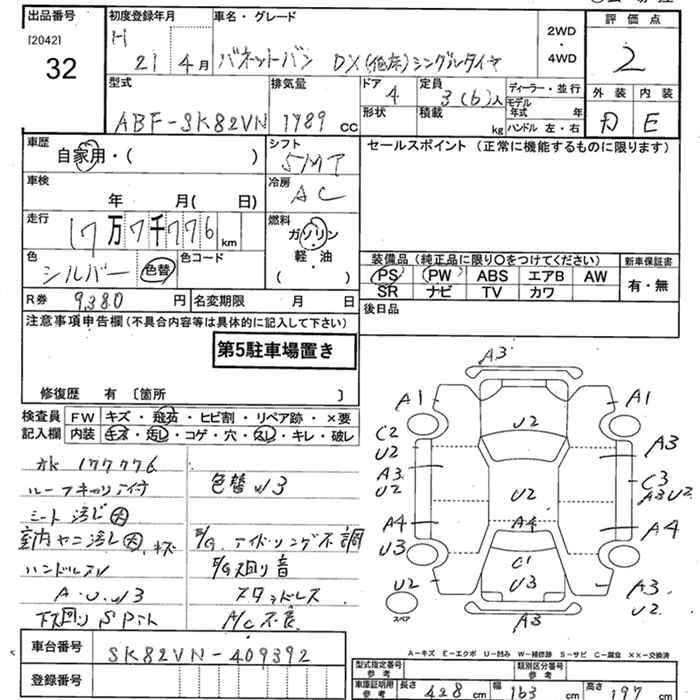 出品番号
[2042]
32
初度登録年月
H
21 4月
車名・グレード
バネットバン DX(低床)シングルタイヤ
2WD
・
4WD
評価点
2
型式
ABF-SK82VN
排気量
1789 cc
ドア
4
形状
定員
3(6)人
積載
kg
ディーラー・並行
モデル
年式 年
ハンドル 左・右
外装 内装
D E
車歴
自家用・( )
シフト
5MT
セールスポイント(正常に機能するものに限ります)
車検
年 月( 日)
冷房
AC
走行
17万7千776 km
燃料
ガソリン
・
軽・油
( )
色
シルバー 色替
色コード
装備品(純正品に限り○をつけてください)
PS PW ABS エアB AW
SR ナビ TV カワ
新車保証書
有・無
R券 9,380 円
名変期限 月 日
後日品
注意事項申告欄(不具合内容等は具体的に記入して下さい)
第5駐車場置き
修復歴 有〔箇所 〕
検査員
記入欄
FW キズ・飛石・ヒビ割・リペア跡・×要
内装 キズ・汚レ・コゲ・穴・スレ・キレ・破レ
メーター 177776
ルーフキャリア付
シート汚レ大
室内ヤニ汚レ大、キズ
ハンドルスレ
A・U・W3
下廻りSアリ
色替W3
E/G アイドリング不調
E/G廻り音
スタッドレス
A/C不良
A3
A1
A1
U2
C2
U2
A3
U2
A3
C3
A3U2
U2
A4
A4
A4
U3
C1
U3
U2
スペア
A3
U2
A3
車台番号
SK82VN-409392
登録番号
A-キズ E-エクボ U-凹み W-補修跡 S-サビ C-腐食 ××-交換済
型式指定番号
参考
類別区分番号
参考
車庫証明用
参考
長さ 428 cm
幅 163 cm
高さ 197 cm